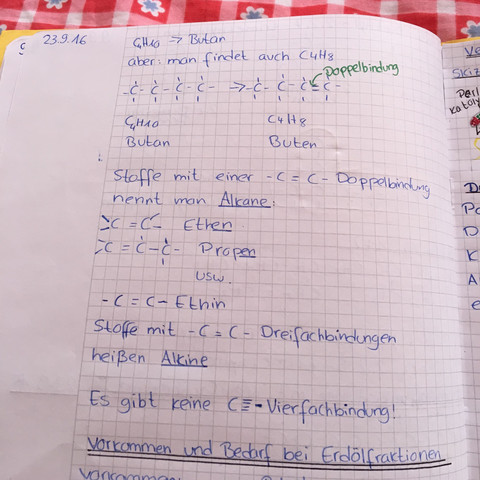 23.9.16
C4H10 → Butan
aber: man findet auch C4H8
Doppelbindung
-C-C-C-C- → -C-C-C=C-
C4H10 C4H8
Butan Buten
Stoffe mit einer -C=C- Doppelbindung
nennt man Alkane:
>C=C- Ethen
>C=C-C- Propen
usw.
-C=C- Ethin
Stoffe mit -C=C- Dreifachbindungen
heißen Alkine
Es gibt keine C≡-Vierfachbindung!
Vorkommen und Bedarf bei Erdölfraktionen
Vorkommen: